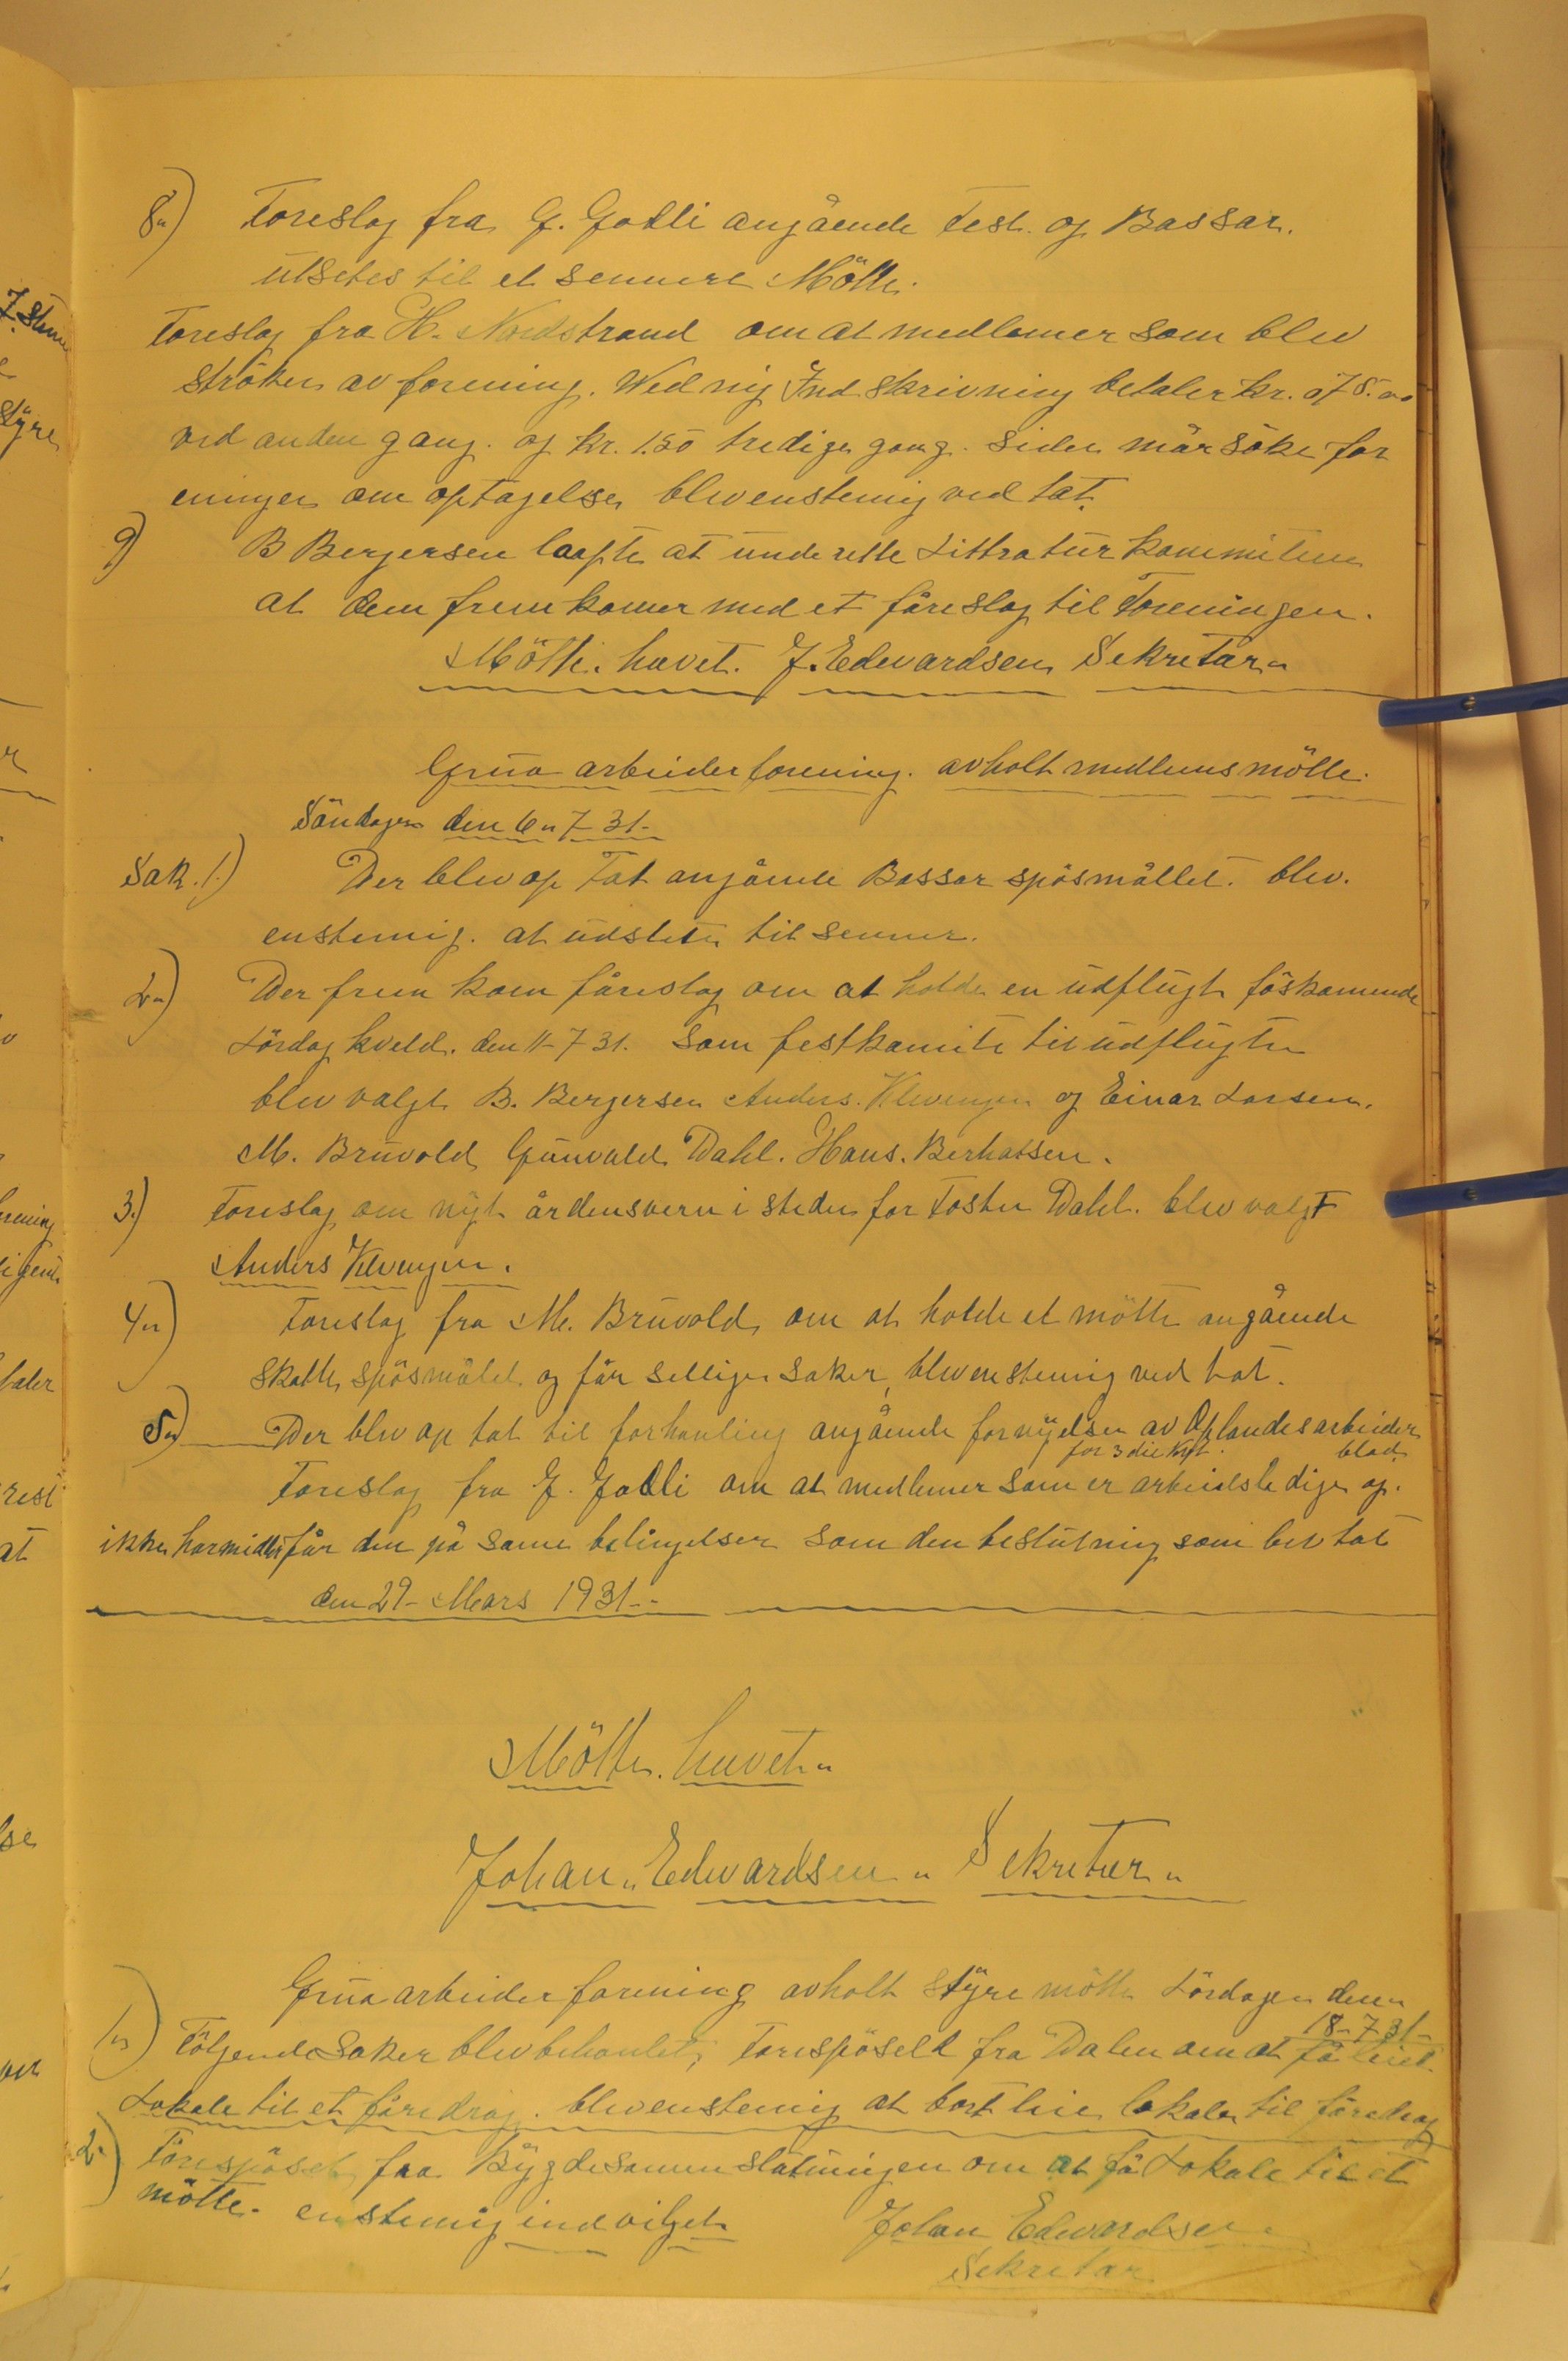 8") Foreslag fra G. Gotli angående Fest. og Bassar.
utsetes til et sennere Mötte.
Foreslag fra H. Nordstrand om at medlemer som blev
ströken av forening. Ved ny Indskrivning betaler kr. 0,75.
ved anden gang. og kr. 1.50 tredige gang. siden mår söke for
eningen om optagelse, blev enstemig ved tat.
9) B Bergersen lovte at underette Littratur kommiteen
at dem frem komer med et fåreslag til Foreningen.
Mötte. hævet. J. Edvardsen Sekretær"
Grua arbeider forening. avholt medlemsmötte.
Söndagen den 6" 7-31-
Sak. 1.) Der blev op Tat angående Bassar spösmållet. blev.
enstemig. at udsette til senner.
2") Der frem kom fåreslag om at holde en udflugt föskomende
Lördag kveld. den 11-7 31. Som festkomite til udflugten
blev valgt B. Bergersen Anders. Klevengen og Einar Larsen.
M. Bruvold, Gunvald Dahl. Hans. Berhatsen.
3.) Foreslag om nyt årdensvern i steden for Tosten Dahl. blev valgt
Anders Klevengen.
4") Foreslag fra M. Bruvold, om at holde et mötte angående
skatte spösmålet og får selliger saker, blev enstemig ved tat.
5") Der blev op tat til forhanling angående fornyelsen av Oplandes arbeider
for 3die kvt. blad.
Foreslag fra G. Gotli om at medlemer som er arbeidsledige og.
ikke har midler får den på same betingelser som den beslutning som blev tat
den 29- Mars 1931--
Mötte. hævet"
Johan" Edvardsen" Sekretær"
Grua arbeider forening avholt styre mötte Lördagen den
18-7-31-
1") Fölgende Saker blev behandlet, Forespösel fra Dalen om at få leiet
Lokale til et føredrag. blev enstemig at bort leie lokalet til føredrag
2") Forespösel fra Bygdesammenslutningen om at få Lokale til et
mötte. enstemig indvilget. Johan Edvardsen
Sekretær